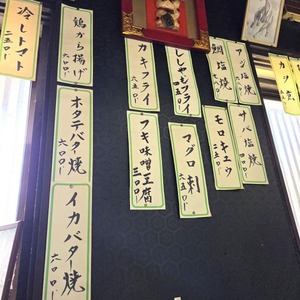 カツ煮
アジ塩焼
鯛塩焼
ししゃもフライ
六五〇円
カキフライ
六五〇円
鶏から揚げ
六〇〇円
冷しトマト
二五〇円
サバ塩焼
モロキュウ
マグロ刺
六五〇円
フキ味噌豆腐
三〇〇円
ホタテバター焼
六〇〇円
イカバター焼
六〇〇円